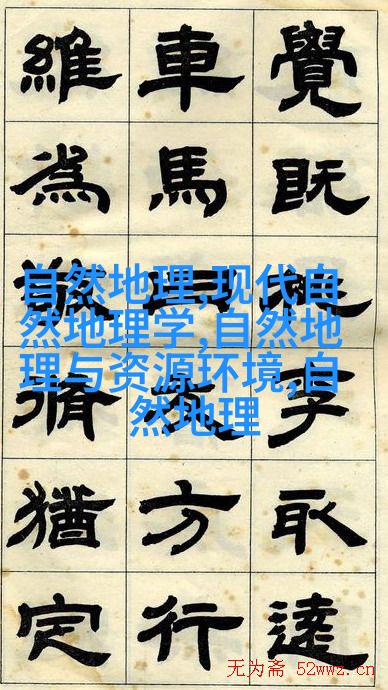 覺
既
取
達
車
馬
方
行
維
為
猶
定
自然地理,现代自
然地理学,自然地
理与资源环境,自
然地理
无为斋 52wwz.cn